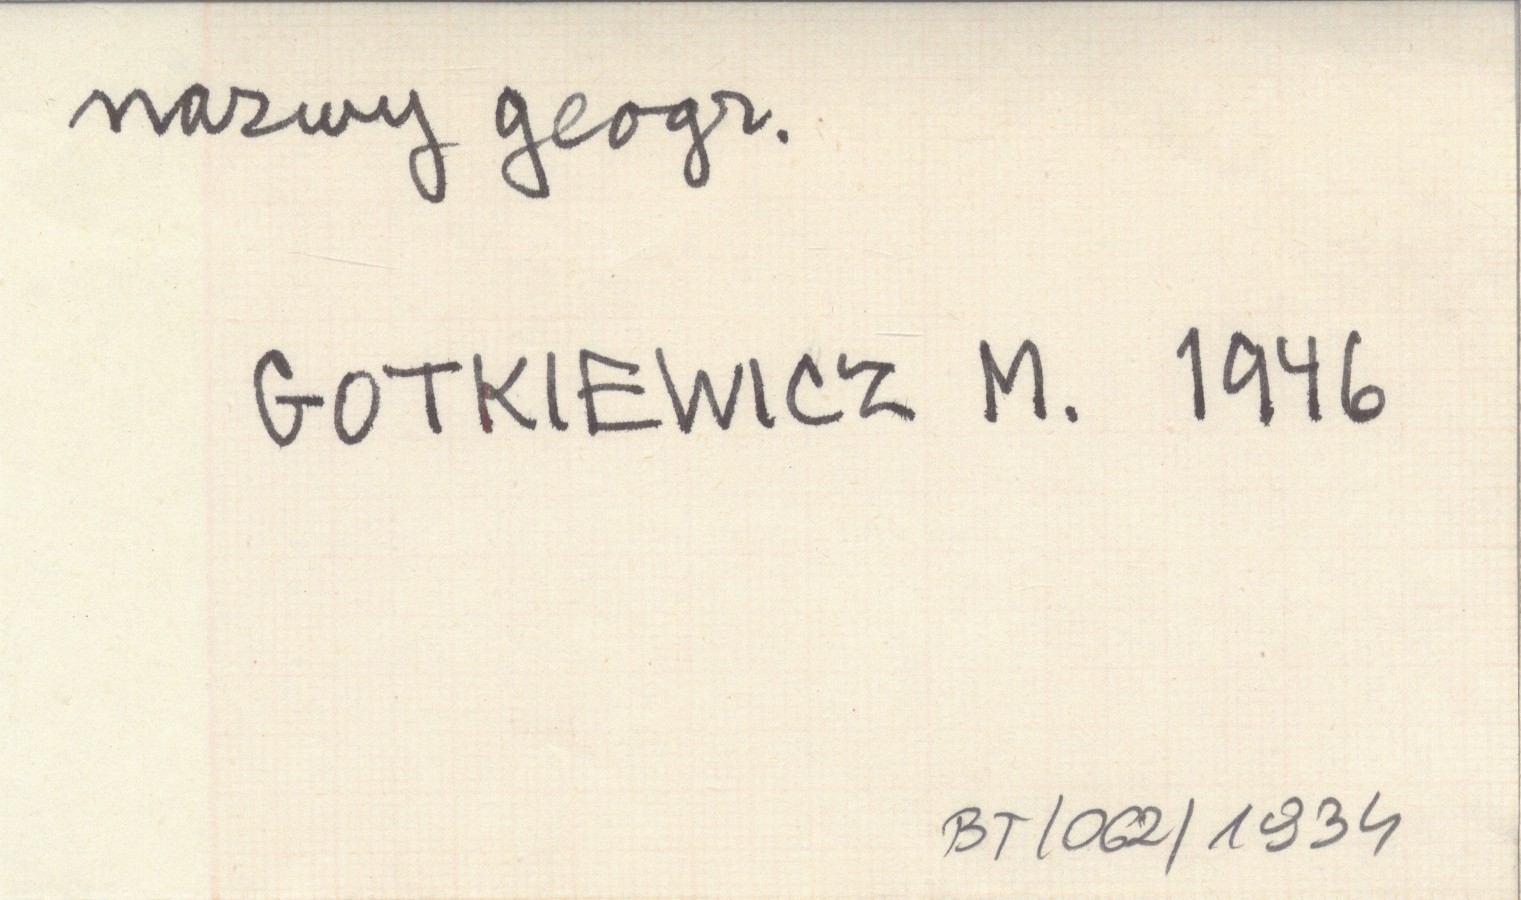 nazwy geogr.
GOTKIEWICZ M. 1946
BT/062/1934